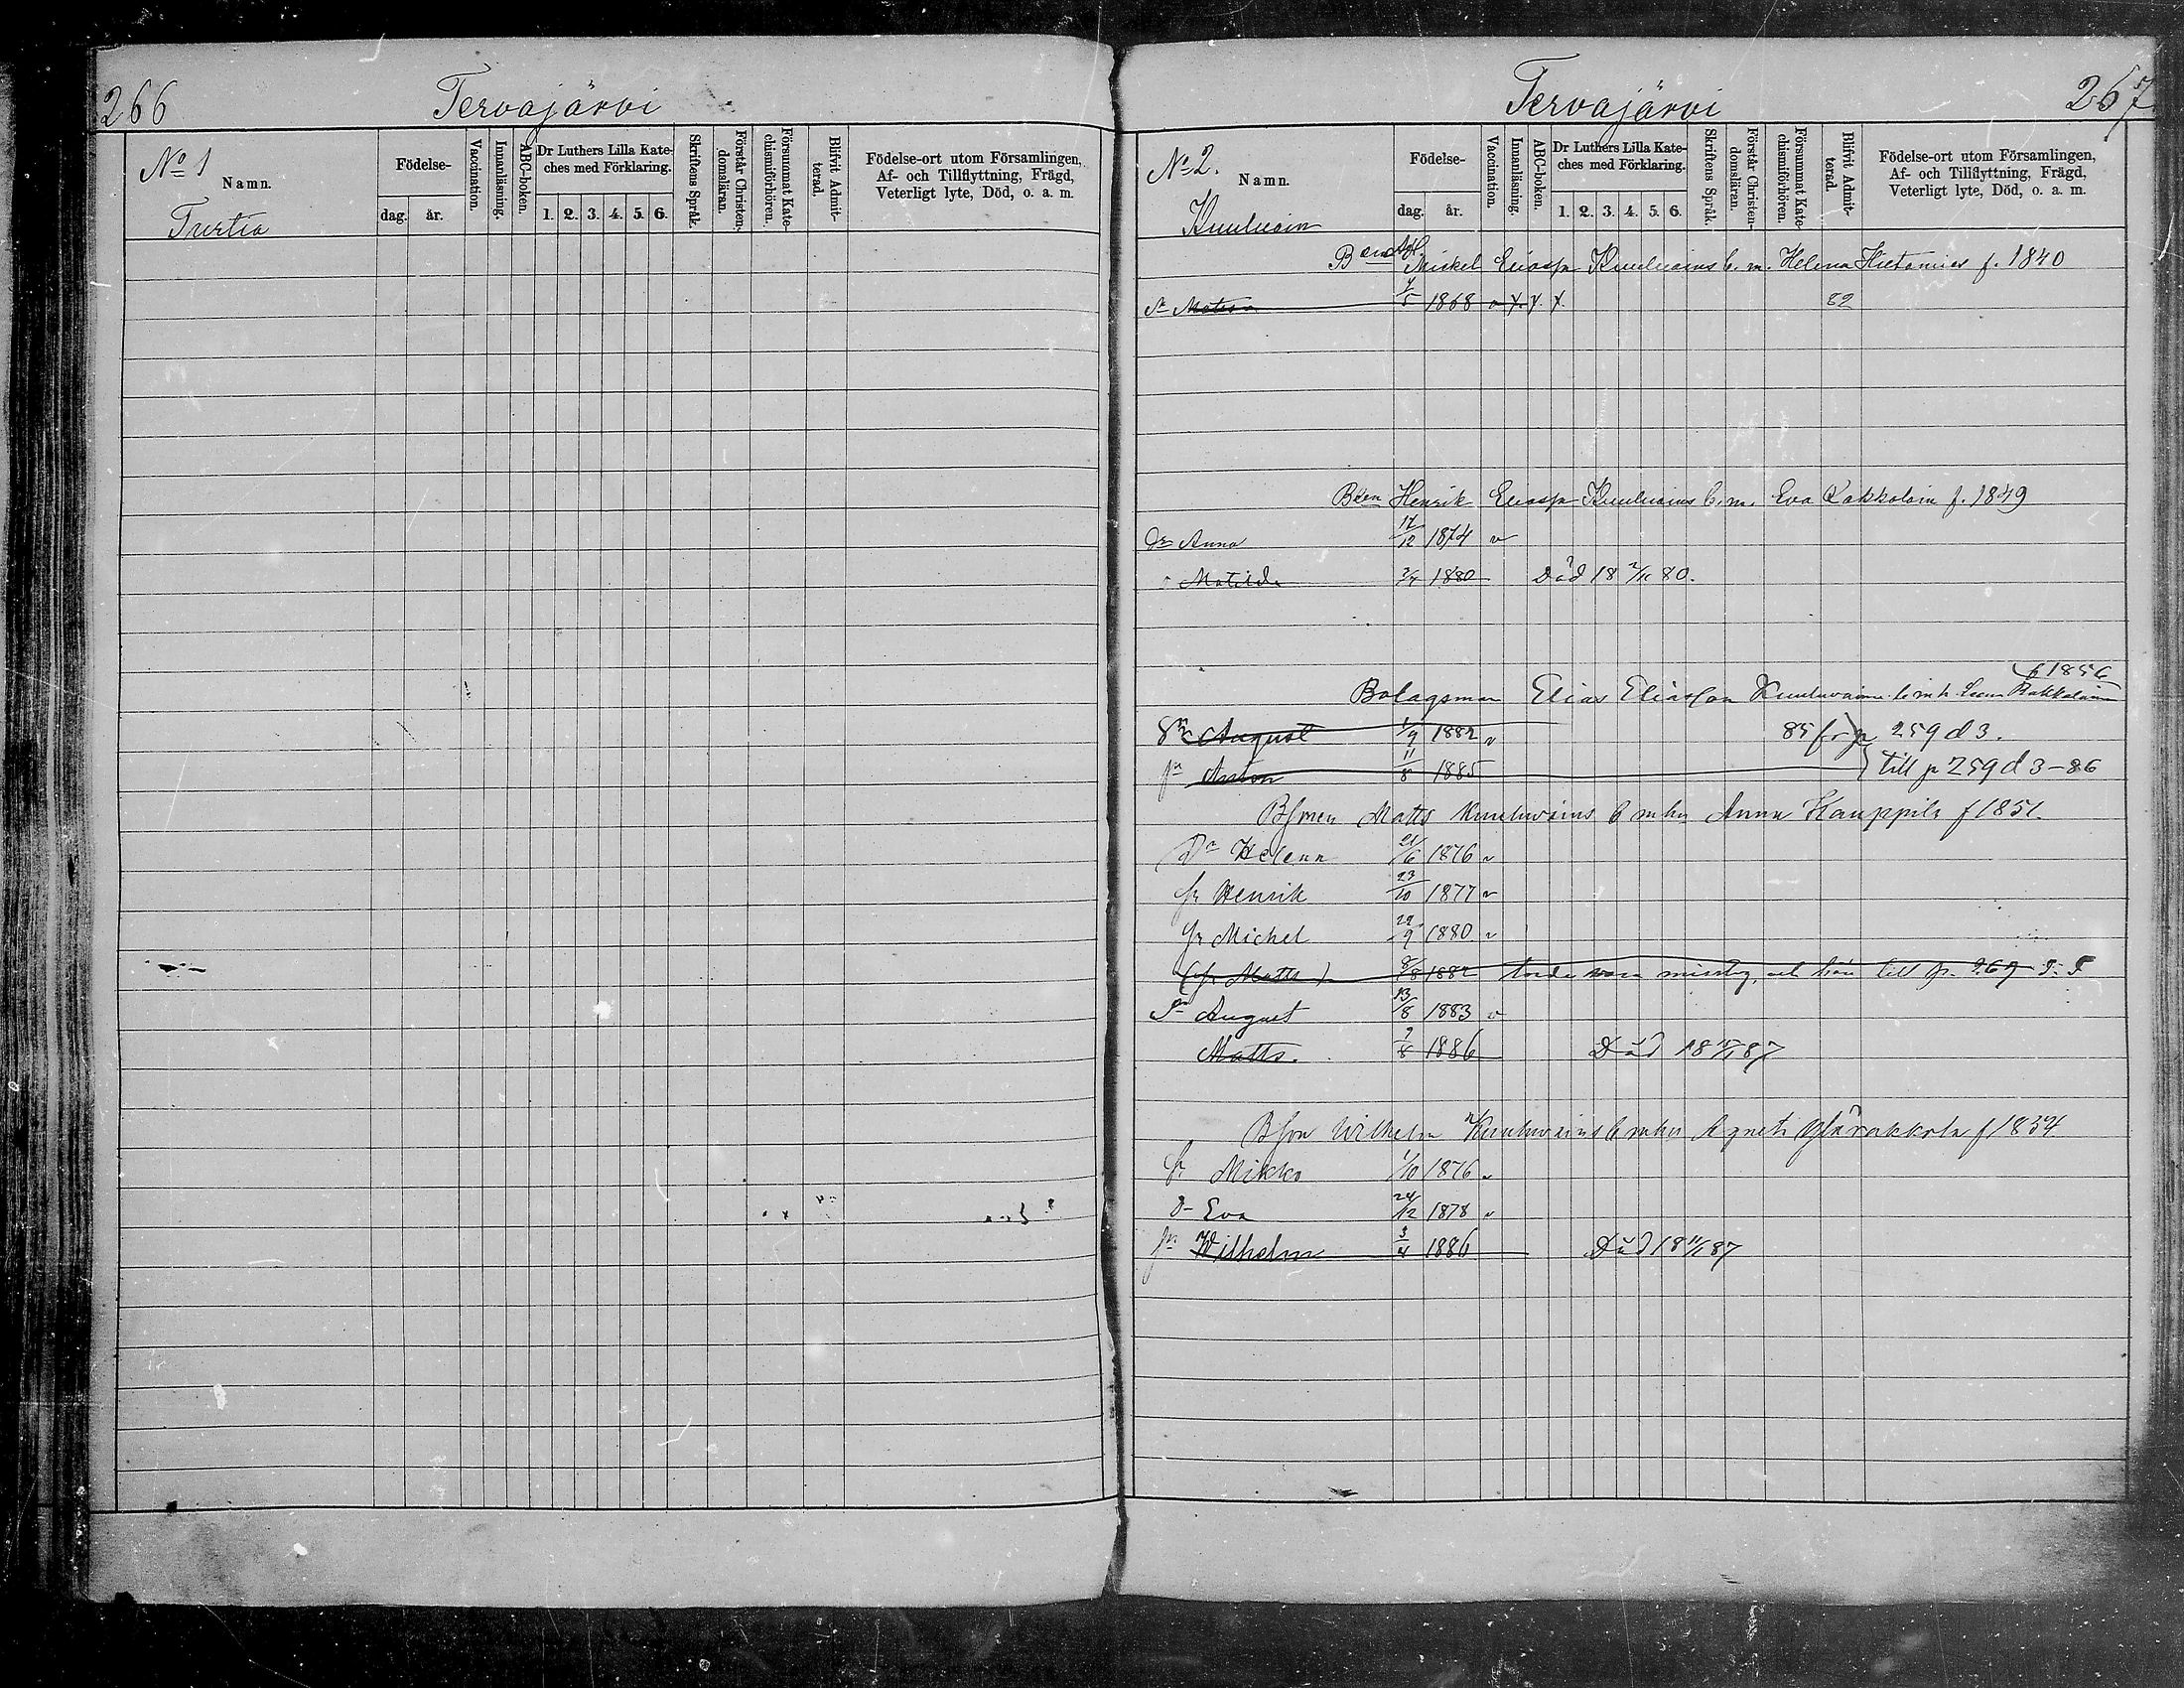 266
Tervajärvi
No 1
Namn.
Turtia
Födelse-
dag. år.
Vaccination.
Innanläsning.
ABC-boken.
Dr Luthers Lilla Kate-
ches med Förklaring.
1. 2. 3. 4. 5. 6.
Skriftens Språk.
Förstår Christen-
domsläran.
Försummat Kate-
chismiförhören.
Blifvit Admit-
terad.
Födelse-ort utom Församlingen,
Af- och Tillflyttning, Frägd,
Veterligt lyte, Död, o. a. m.
Tervajärvi
267
No 2.
Namn.
Kuuluvain
Födelse-
dag. år.
Vaccination.
Innanläsning.
ABC-boken.
Dr Luthers Lilla Kate-
ches med Förklaring.
1. 2. 3. 4. 5. 6.
Skriftens Språk.
Förstår Christen-
domsläran.
Försummat Kate-
chismiförhören.
Blifvit Admit-
terad.
Födelse-ort utom Församlingen,
Af- och Tillflyttning, Frägd,
Veterligt lyte, Död, o. a. m.
Mickel Eliasson Kuuluvains b. m. Helena Hietamies f. 1840
1868 82
Henrik Eliasson Kuuluvains b. m. Eva f. 1849
Anna 17/12 1874 v
Matilda 1880 Död 18 80.
f 1856
Bolagsman Elias Eliasson Kuuluvains b m h Leena Rakkolainen
Sn August 1/9 1882 v 85 fr p 259 d 3.
Sn Anton 11/8 1885 till p 259 d 3-86
Matts Kuuluvains b m hu Anna Kauppila f 1851.
Dr Helena 21/6 1876 v
Sn Henrik 23/10 1877 v
Sn Michel 29/9 1880 v
(Sn Matts) 8/8 1882 torde vara misstag, och till p. 269
Sn August 13/8 1883 v
Matts. 7/8 1886 Död 18 87
Wilhelm Kuuluvains b m hu Agneta f 1854
Sn Mikko 1/10 1876 v
D Eva 24/12 1878 v
Sn Wilhelm 3/4 1886 Död 18 11/1 87